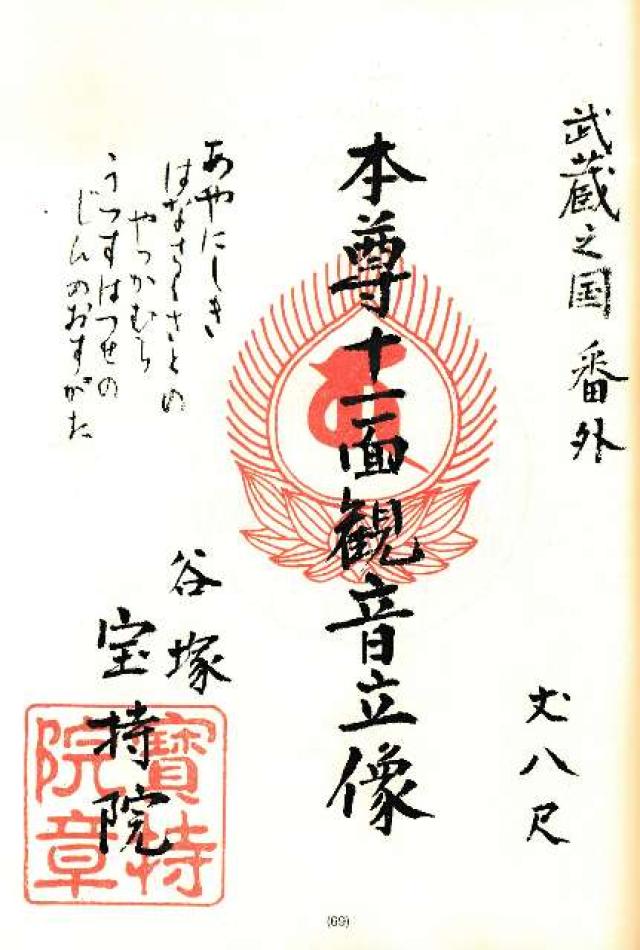 武蔵之国番外
丈八尺
本尊十一面観音立像
あやにしき
はなさくさとの
やつかむら
うつすはつせの
じんのおすがた
谷塚
宝持院
寳持
院章
(69)